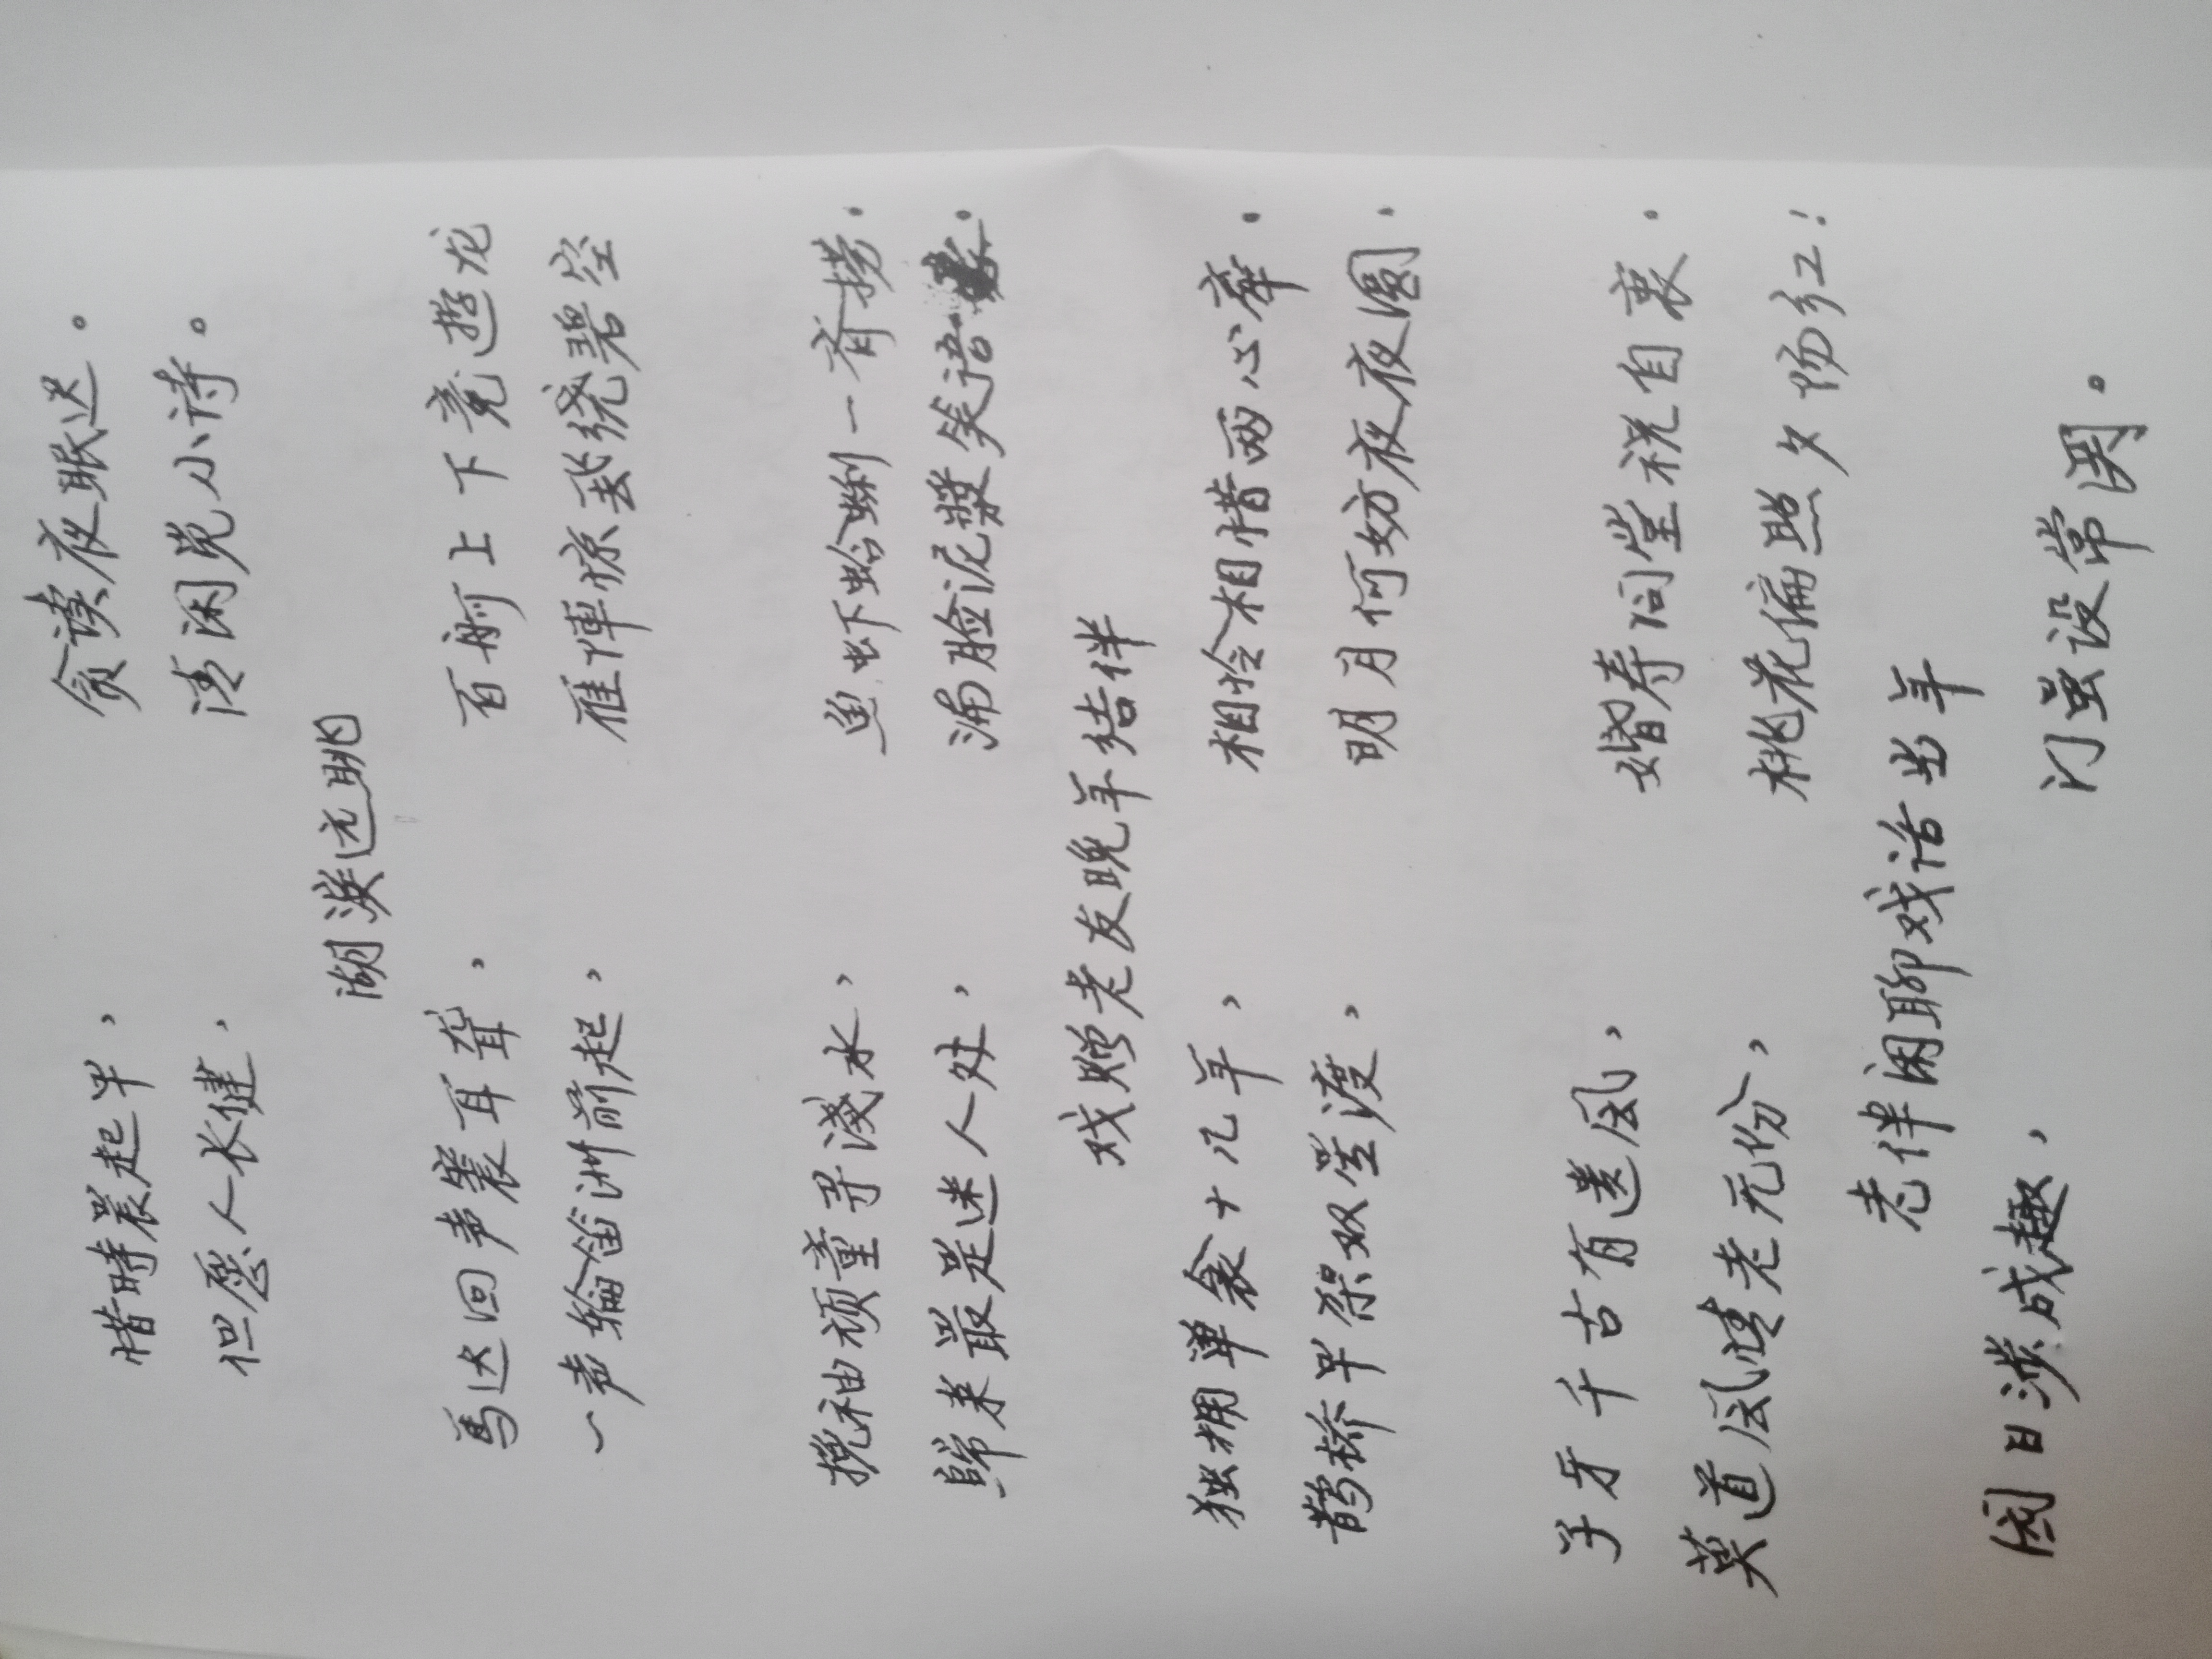 惜時晨起早，贪读夜眠迟。
但愿人长健，清闲觅小诗。
湖滨远眺
马达回声震耳聋，百舸上下竞游龙
一声轮笛洲前起，雁陣惊飞绕碧空
挽袖顽童寻淺水，鱼虾蛤蜊一齐捞。
歸来最是迷人处，满脸泥漿笑语
戏赠老友晚年结伴
独拥单衾十几年，相怜相惜两心牵。
鹊桥早架双星渡，明月何妨夜夜圆。
子牙千古有遗风，婚寿同堂祝自衷。
莫道风情老无份，桃花偏照夕阳红！
老伴闲聊戏话当年
园日涉成趣，门虽设常関。